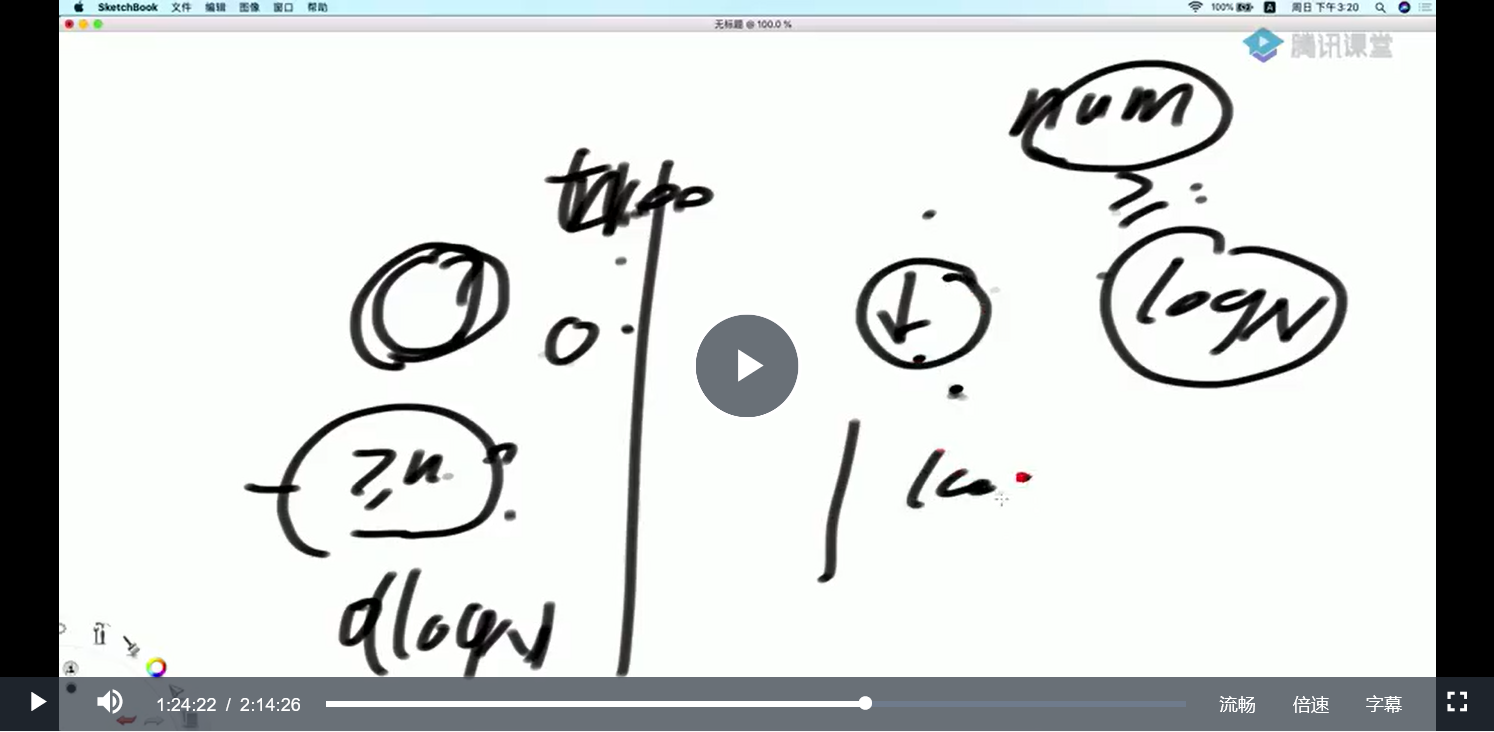 SketchBook 文件 编辑 图像 窗口 帮助
100% A 周日 下午3:20
无标题 @ 100.0 %
腾讯课堂
num
≥
logN
≥n
logN
1:24:22 / 2:14:26 流畅 倍速 字幕